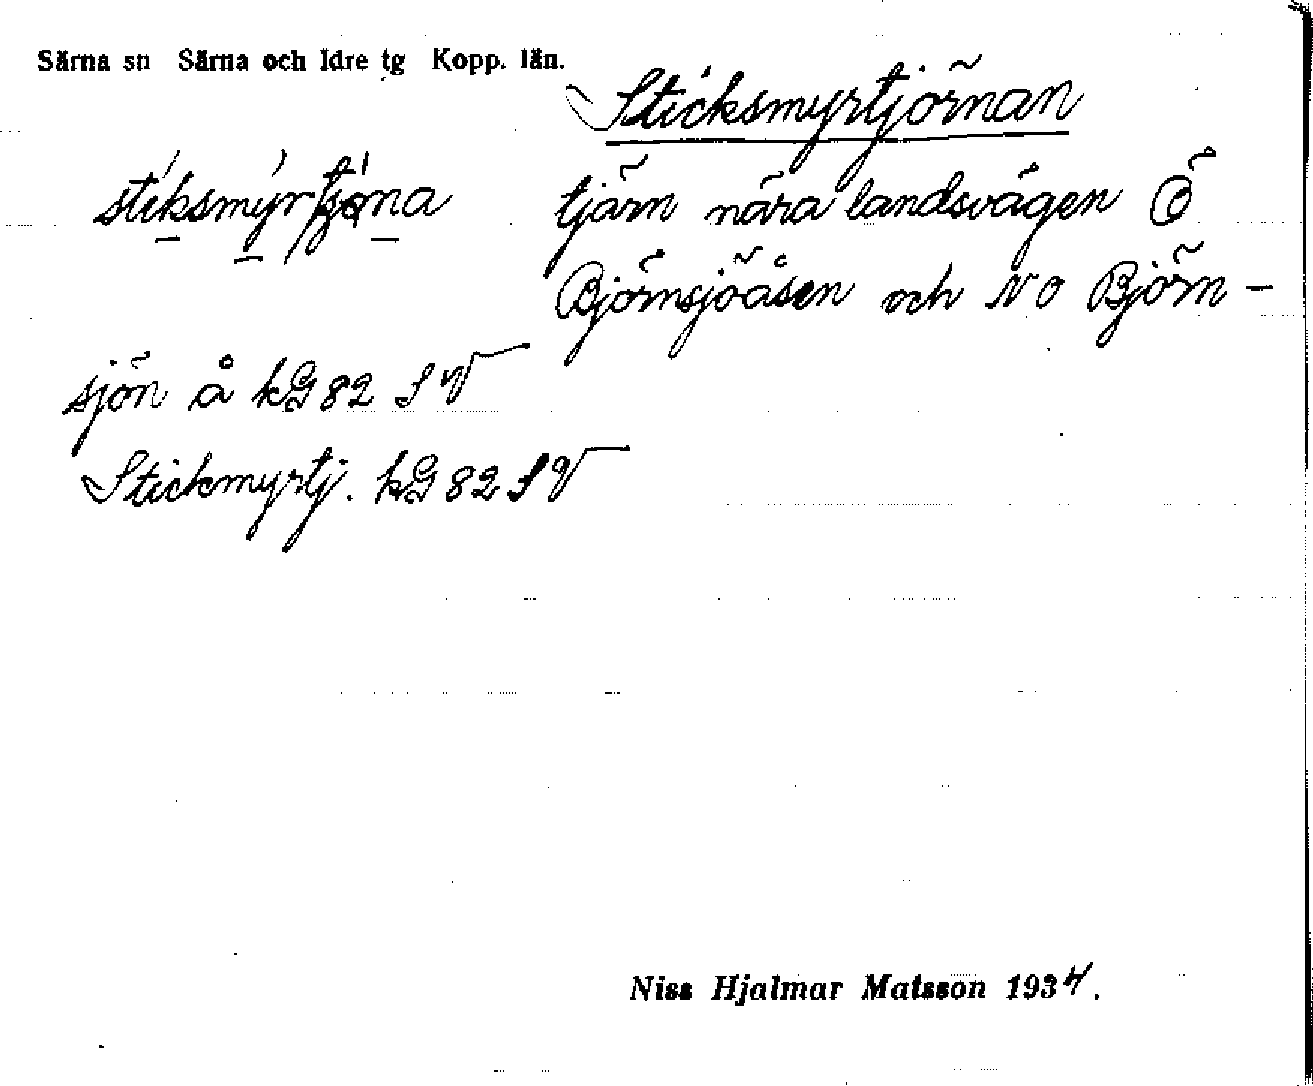 Särna sn Särna och Idre tg Kopp. län.
Sticksmyrtjörnan
tjärn nära landsvägen Ö
Björnsjöåsen och NO Björn-
sjön å kG 82 SV
Stickmyrtj. kG 82 SV
Niss Hjalmar Matsson 1934.